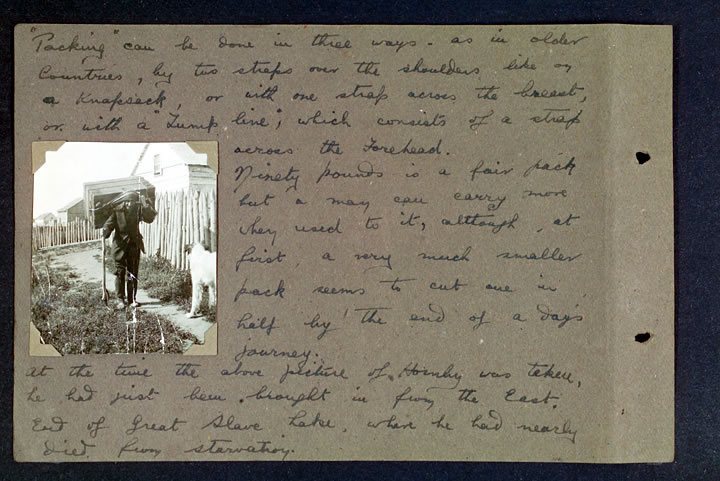 "Packing" can be done in three ways - as in older
Countries, by two straps over the shoulders like on
a Knapsack, or with one strap across the breast,
or with a "Tump line", which consists of a strap
across the Forehead.
Ninety pounds is a fair pack
but a man can carry more
when used to it, although, at
first, a very much smaller
pack seems to cut one in
half by the end of a day's
journey.
At the time the above picture of Hornby was taken,
he had just been brought in from the East.
End of Great Slave Lake, where he had nearly
died from starvation.